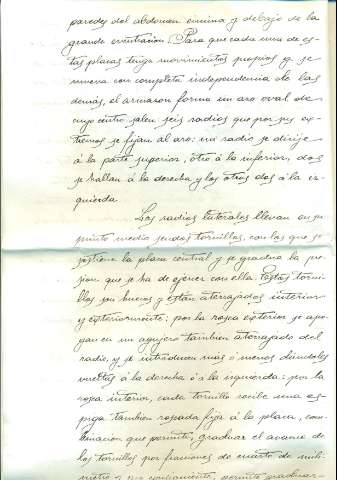 paredes del abdomen encima y debajo de la
grande eventración. Para que cada una de es-
tas placas tenga movimientos propios y se
mueva con completa independencia de las
demás, el armazon forma un aro oval de
cuyo centro salen seis radios que por sus ex-
tremos se fijan al aro: un radio se dirije
á la parte superior, otro á la inferior, dos
se hallan á la derecha y los otros dos á la iz-
quierda.
Los radios laterales llevan en su
punto medio sendos tornillos, con los que se
sostiene la placa central y se gradua la pre-
sion que se ha de ejercer con ella. Estos torni-
llos son huecos y están aterrajados interior
y exteriormente; por la rosca exterior se apo-
yan en un agujero tambien aterrajado del
radio, y se introducen mas ó menos dándoles
vueltas á la derecha ó á la izquierda: por la
rosca interior, cada tornillo recibe una es-
piga tambien roscada fija á la placa, com-
binacion que permite, graduar el avance de
los tornillos por fracciones de cuarto de milí-
metro y por consiguiente, permite graduar